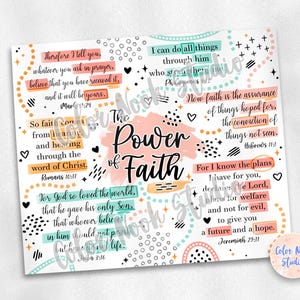 Therefore I tell you,
whatever you ask in prayer,
believe that you have received it,
and it will be yours.
Mark 11:24
I can do all things
through him
who
Now faith is the assurance
of things hoped for,
the conviction of
things not seen.
Hebrews 11:1
So faith
from and
hearing through the
word of Christ.
Romans 10:17
The
Power
of Faith
For God so loved the world,
that he gave his only Son,
that whoever believes
in him
life.
3:16
For I know the plans
I have for you,
the Lord,
for welfare
and not for evil,
to give you
future and a hope.
Jeremiah 29:11
Color Nook Studio
Color Nook Studio
Color Nook
Studio